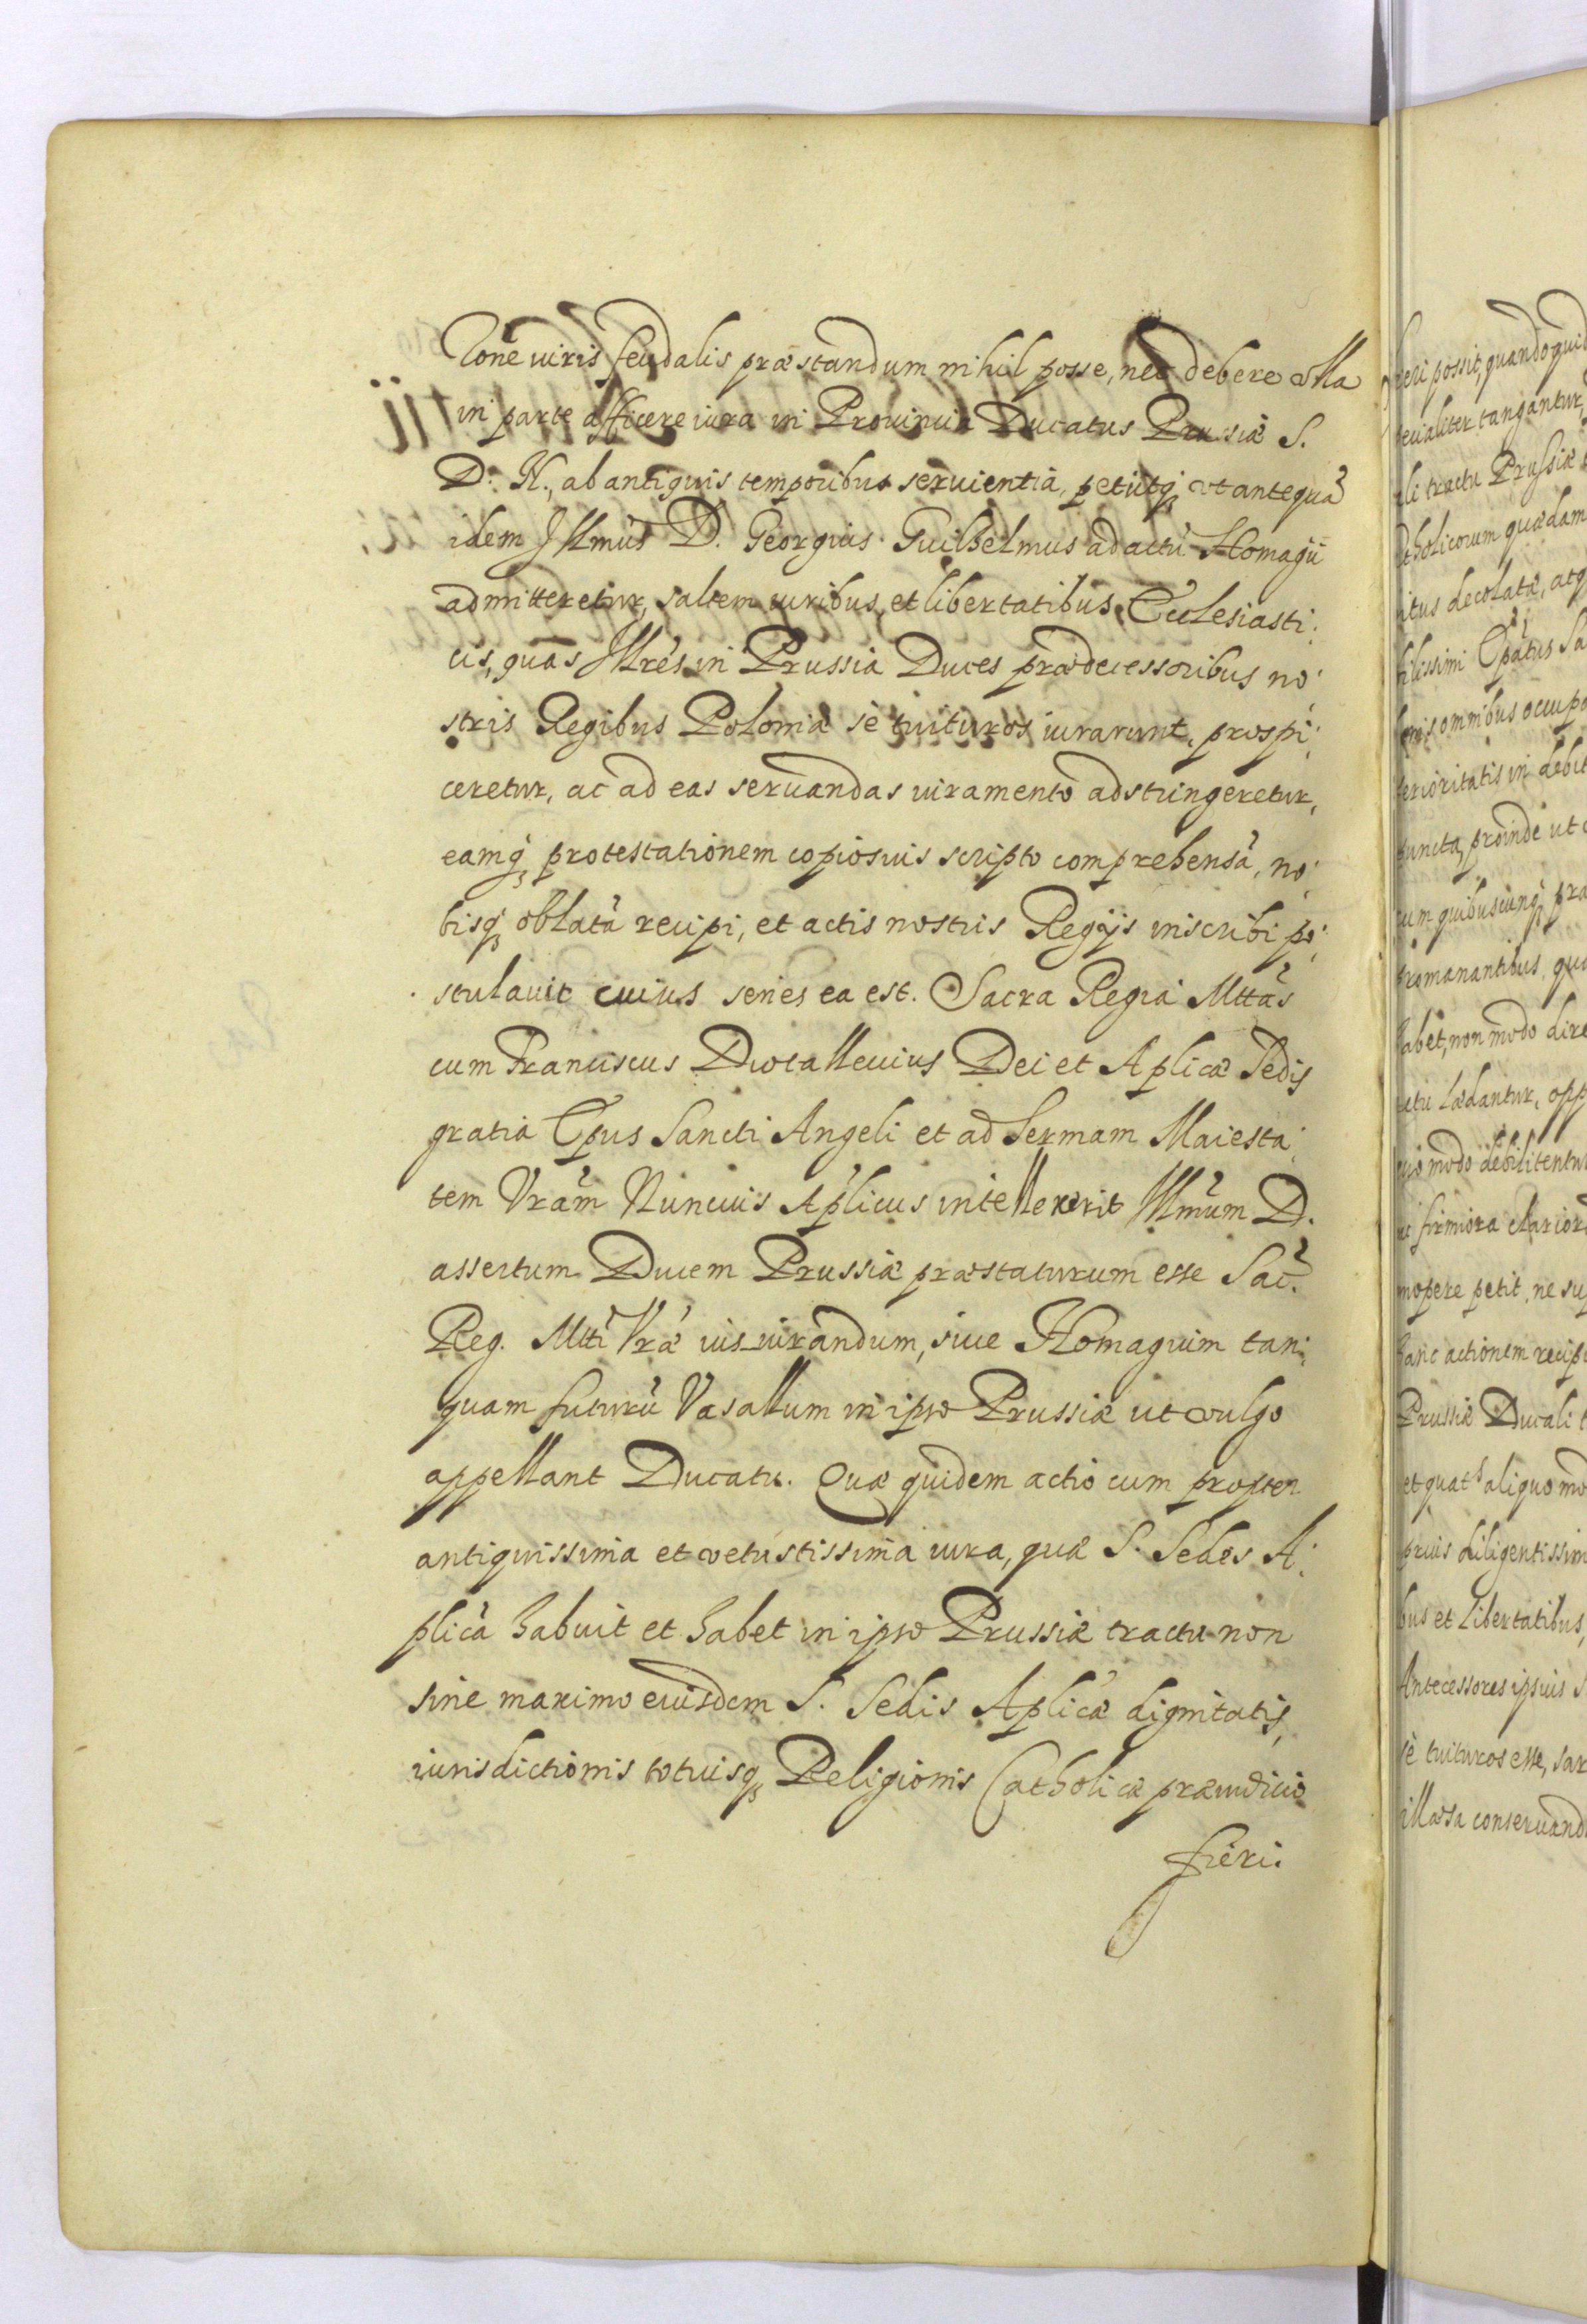 tionē iuris feudalis præstandum nihil posse, nec debere vlla
in parte afficere iura in Prouincia Ducatus Prussiæ S.
D. N., ab antiquis temporibus seruientia, petijtq; vt antequā
idem Illmus D. Georgius Guilhelmus ad actū Homagij
admitteretur, saltem iuribus, et libertatibus Ecclesiasti:
cis, quas Illres in Prussia Duces prædecessoribus no:
stris Regibus Poloniæ sè tuituros iurarunt, prospi:
ceretur, ac ad eas seruandas iuramento adstringeretur,
eamq; protestationem copiosius scripto comprehensā, no:
bisq; oblatā recipi, et actis nostris Regijs inscribi po:
stulauit cuius series ea est. Sacra Regia Mttas
cum Franciscus Diotalleuius Dei et Aplicæ Sedis
gratia Epus Sancti Angeli et ad Sermam Maiesta:
tem Vram Nuncius Aplicus intellexerit Illmum D.
assertum Ducem Prussiæ præstaturum esse Sac.
Reg. Mtti Vræ iusiurandum, siue Homagium tan:
quam futurū Vasallum in ipso Prussiæ ut vulgo
appellant Ducatu. Quæ quidem actio cum propter
antiquissima et vetustissima iura, quæ S. Sedes A:
plica habuit et habet in ipso Prussiæ tractu non
sine maximo eiusdem S. Sedis Aplicæ dignitatis,
iurisdictionis totiusq; Religionis Catholicæ præiudicio
fieri
fieri possit, quandoquid
ecialiter tangantur,
ali tractu Prussiæ
atholicorum quædam
itus decolata, atq
Epatus Sa
omnibus occupa
erioritatis in debit
puncta, proinde ut
cum quibuscunq; præ
romanantibus, qua
habet, non modo dire
lædantur, opp
quo modo debilitentur
firmiora clarior
mopere petit, ne su
hanc actionem recipi
Prussiæ Ducali
et quat aliquo mo
prius diligentissim
bus et Libertatibus,
Antecessores ipsius S
sè tuituros esse, sar
illæsa conseruand